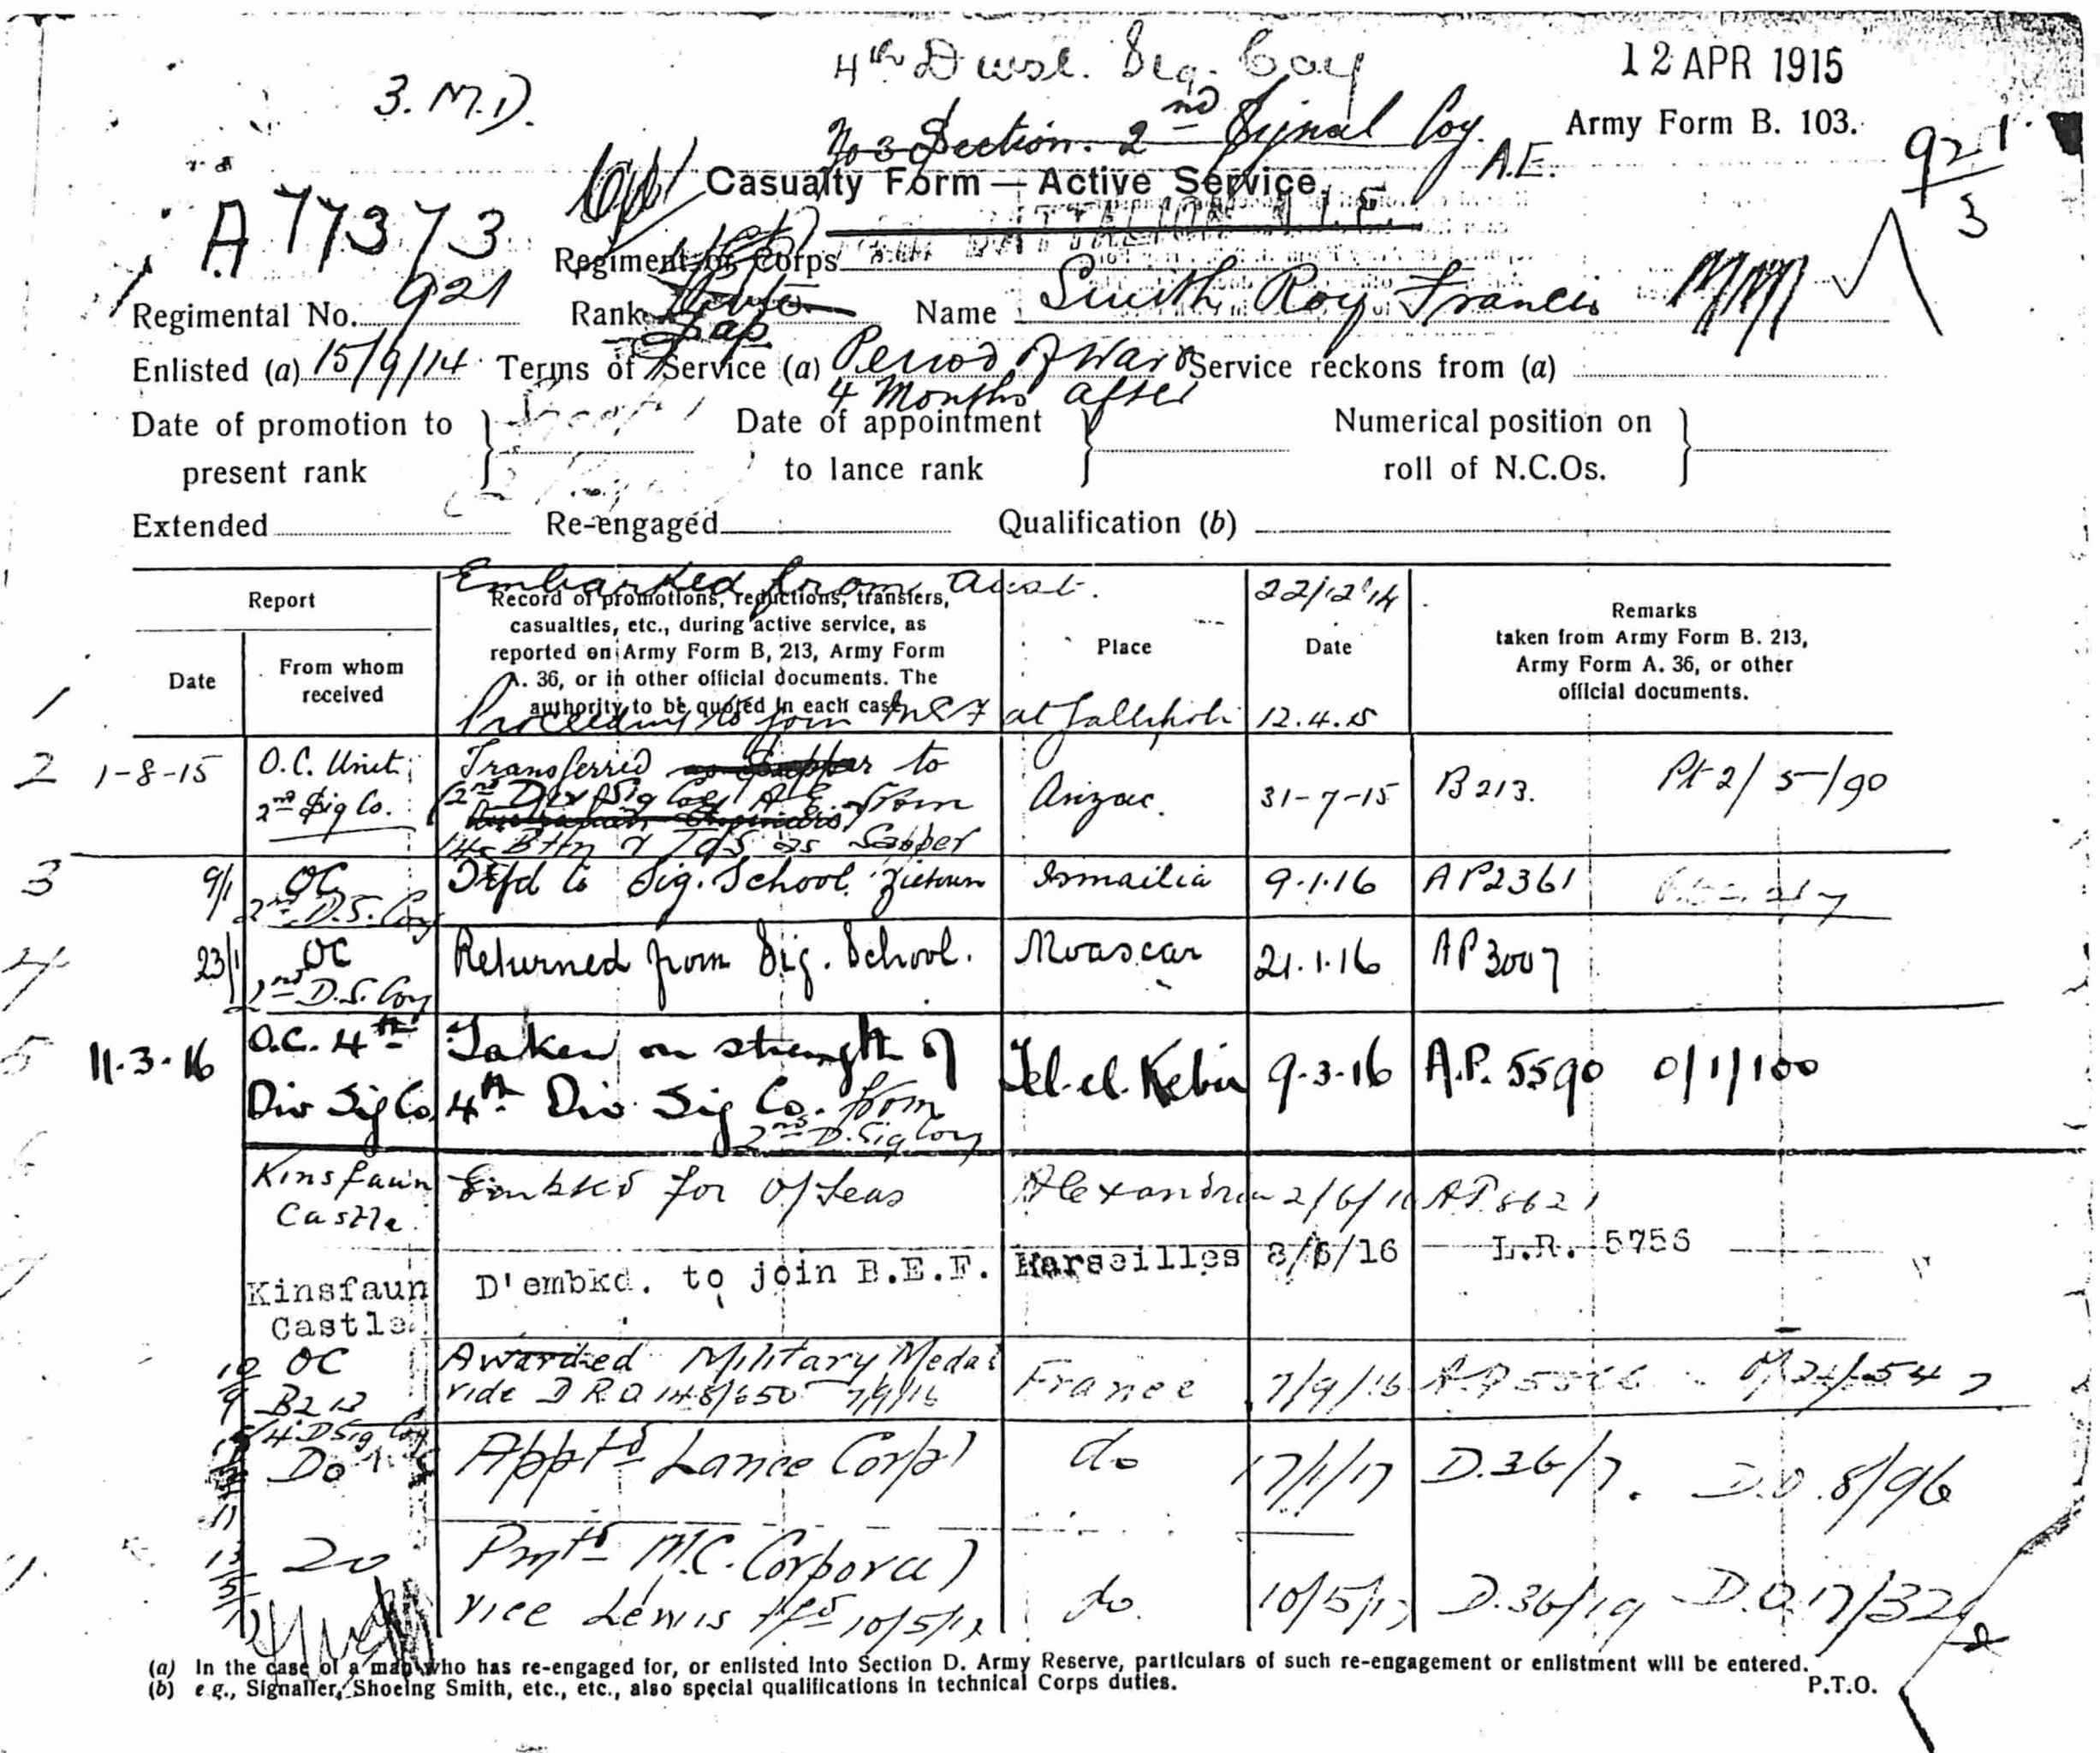 12 APR 1915
3. M.D.
4th Divsl. Sig. Coy
No 3 Section. 2nd Signal Coy. A.E.
Army Form B. 103.
921/3
Casualty Form — Active Service.
A 77373
BATTALION A.I.F.
Regiment or Corps
Regimental No. 921 Rank Sap Name Smith Roy Francis MM
Enlisted (a) 15/9/14 Terms of Service (a) Period of War & Service reckons from (a)
4 Months after
Date of promotion to present rank } Date of appointment to lance rank } Numerical position on roll of N.C.Os. }
Extended Re-engaged Qualification (b)
Embarked from Aust. 22/12/14
Report
Date
From whom received
Record of promotions, reductions, transfers,
casualties, etc., during active service, as
reported on Army Form B, 213, Army Form
A. 36, or in other official documents. The
authority to be quoted in each case
Place
Date
Remarks
taken from Army Form B. 213,
Army Form A. 36, or other
official documents.
1 Proceeding to join MEF at Gallipoli 12.4.15
2 1-8-15 O.C. Unit Transferred to
2nd Sig Co. 2nd Div Sig Coy A.E. from Anzac. 31-7-15 B213. Pt 2/ 5-/90
Bttn & TOS as Sapper
3 9/1 OC Sig. School Zietoun Ismailia 9.1.16 AP2361
2nd D.S. Coy
4 23/1 OC Returned from Sig. School. Moascar 21.1.16 AP3007
2nd D.S. Coy
5 11.3.16 O.C. 4th Taken on strength of Tel-el-Kebir 9.3.16 A.P. 5590 0/1/100
Div Sig Co 4th Div Sig Co. from
2nd D. Sig Coy
Kinsfaun Embkd for O/Seas Alexandria 2/6/16 A.P. 8621
Castle
Kinsfaun D'embkd. to join B.E.F. Marseilles 8/6/16 L.R. 5756
Castle
12/9 OC Awarded Military Medal
B213 vide D R O 148/650 7/9/16 France 7/9/16
4 D Sig Coy
Do Apptd Lance Corpl do 17/1/17 D.36/7. D.O. 8/96
Do Pmtd M.C. Corporal
vice Lewis 10/5/17 do 10/5/17 D.36/19 D.O. 17/32
(a) In the case of a man who has re-engaged for, or enlisted into Section D. Army Reserve, particulars of such re-engagement or enlistment will be entered.
(b) e.g., Signaller, Shoeing Smith, etc., etc., also special qualifications in technical Corps duties. P.T.O.